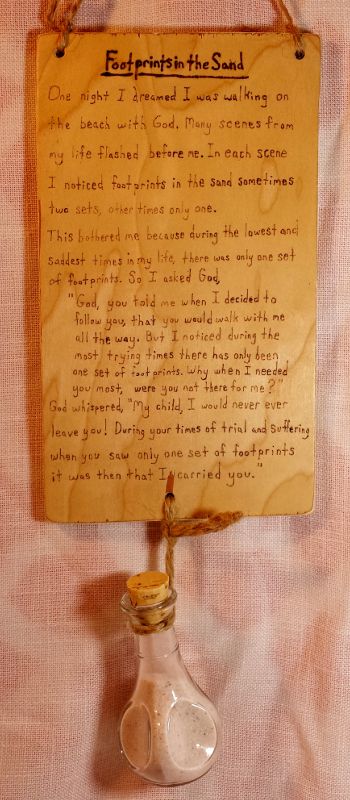 Footprints in the Sand
One night I dreamed I was walking on
the beach with God. Many scenes from
my life flashed before me. In each scene
I noticed footprints in the sand sometimes
two sets, other times only one.
This bothered me because during the lowest and
saddest times in my life, there was only one set
of footprints. So I asked God,
"God, you told me when I decided to
follow you, that you would walk with me
all the way. But I noticed during the
most trying times there has only been
one set of footprints. Why when I needed
you most, were you not there for me?"
God whispered, "My child, I would never ever
leave you! During your times of trial and suffering
when you saw only one set of footprints
it was then that I carried you."